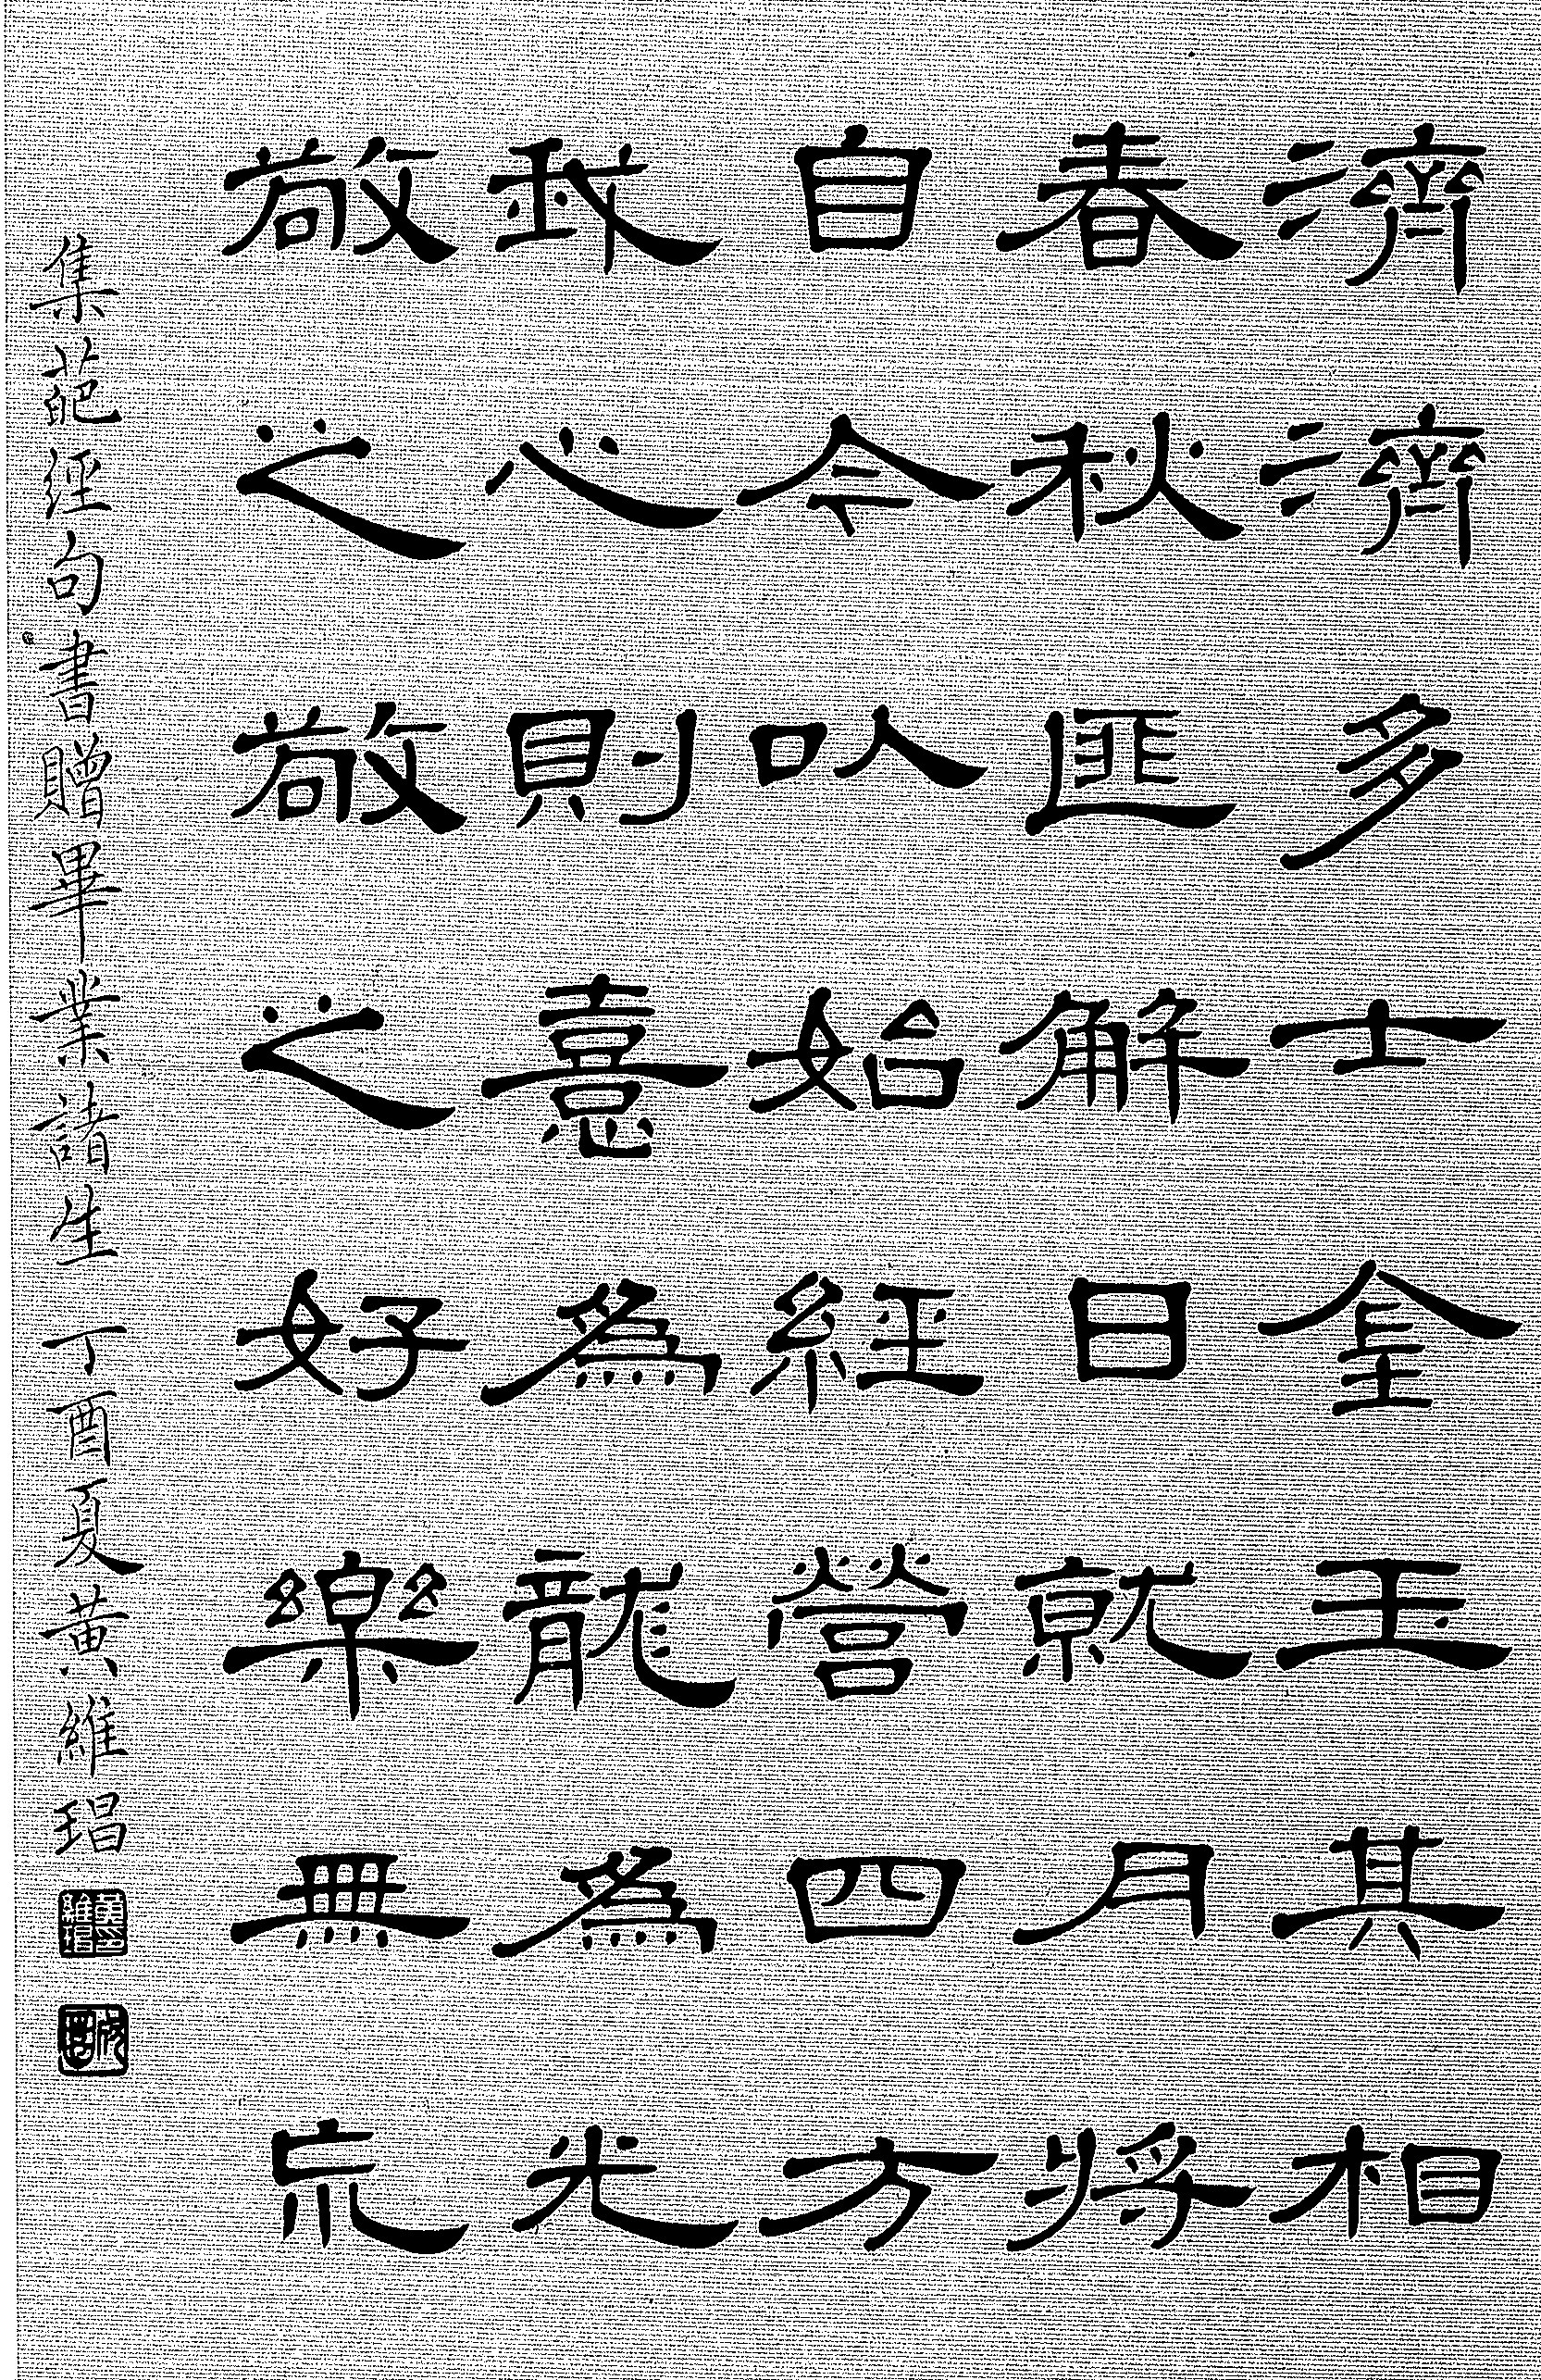 濟濟多士金玉其相
春秋匪解日就月將
自今㕥始經營四方
我心則憙為龍為光
敬之敬之好樂無巟
集葩經句書贈畢業諸生 丁酉夏黃維琩